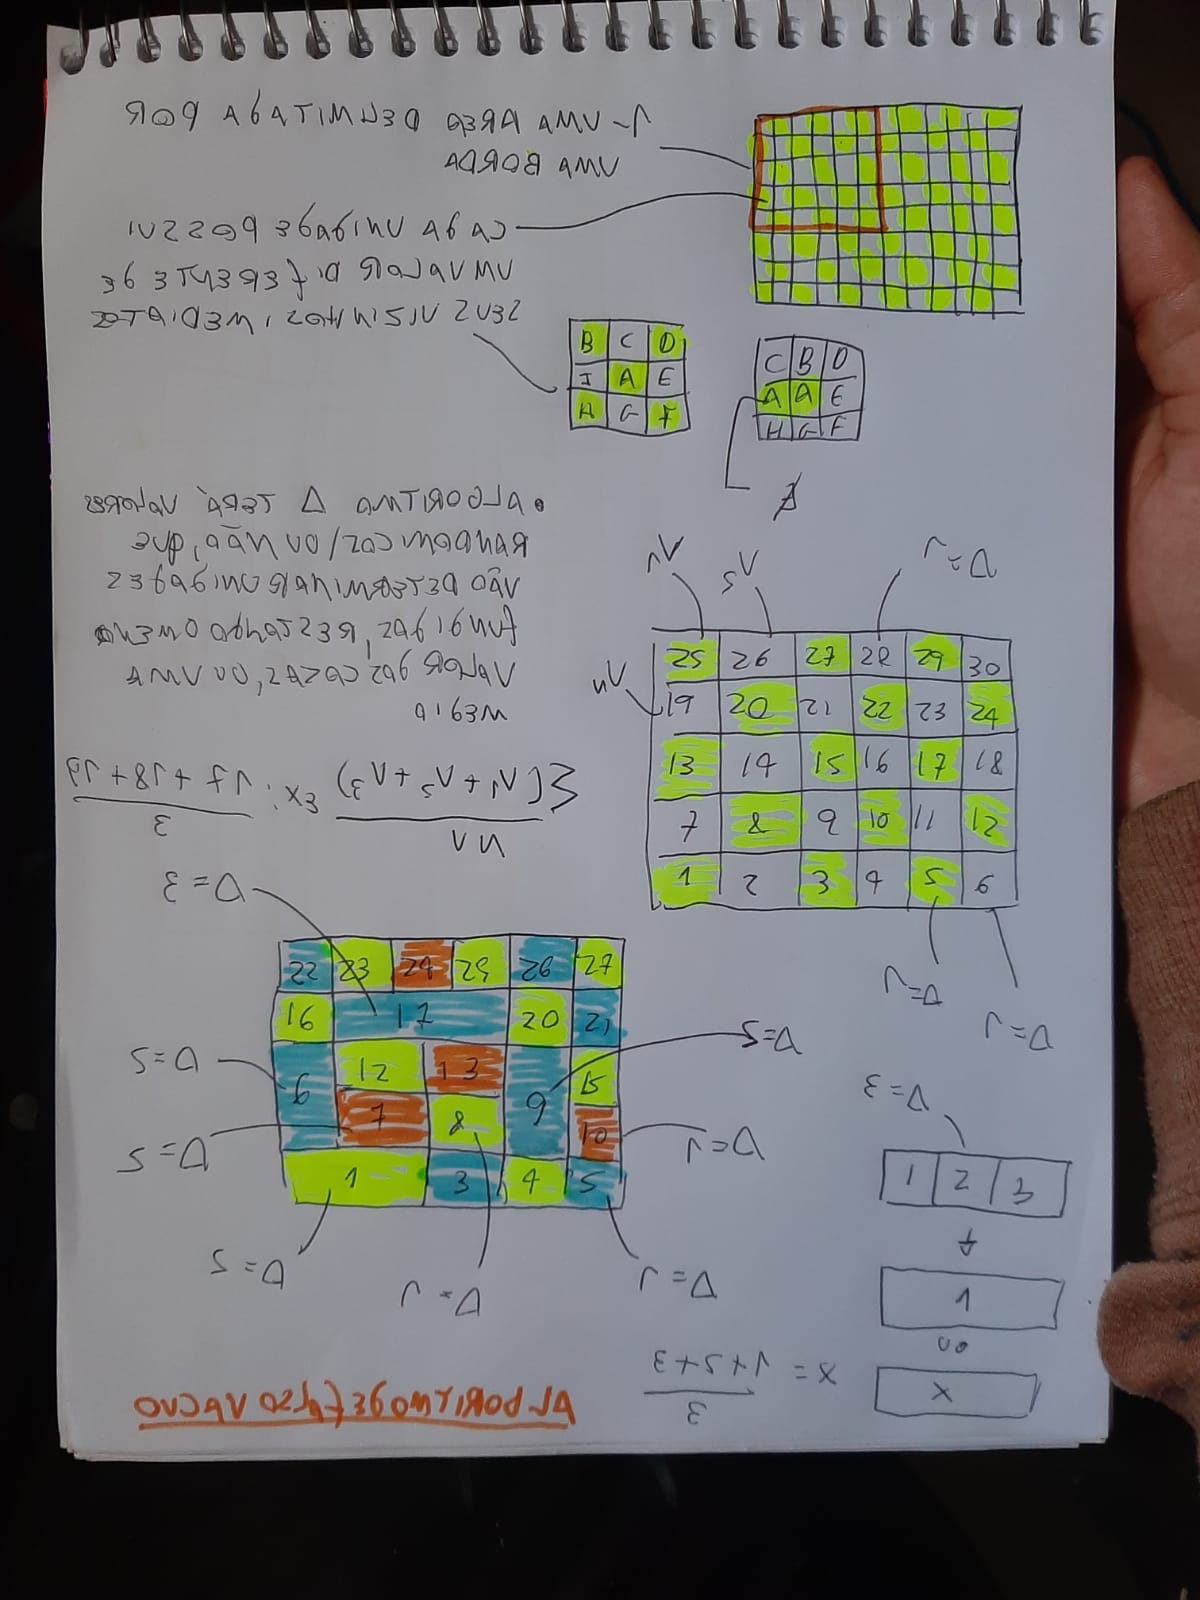 1- UMA AREA DELIMITADA POR
UMA BORDA
CADA UNIDADE POSSUI
UM VALOR DIFERENTE DE
SEUS VISINHOS IMEDIATOS
B C D
I A E
H G F
C B D
A A E
H G F
• ALGORITMO Δ TERÁ VALORES
RANDOMICOS/OU NÃO, QUE
VÃO DETERMINAR UNIDADES
FUNDIDAS, RESTANDO O MENOR
VALOR DAS CASAS, OU UMA
MEDIA
V1
V2
Δ=1
Vn
25 26 27 28 29 30
19 20 21 22 23 24
13 14 15 16 17 18
7 8 9 10 11 12
1 2 3 4 5 6
Δ=1
Δ=1
Σ(V1+V2+V3) Ex: 17+18+19
3
Δ=3
22 23 24 25 26 27
16 17 20 21
12 13 15
9 7 8 6 10
1 3 4 5
Δ=2
Δ=2
Δ=2
Δ=1
Δ=2
Δ=1
Δ=1
Δ=3
1 2 3
1
OU
X
X = 1+2+3
3
ALGORITMO DE FALSO VACUO